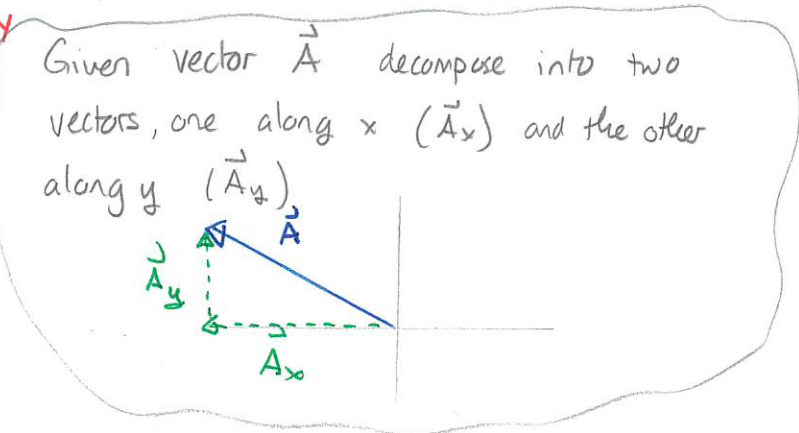 Given vector A⃗ decompose into two
vectors, one along x (A⃗ₓ) and the other
along y (A⃗y)
A⃗
A⃗y
A⃗ₓ